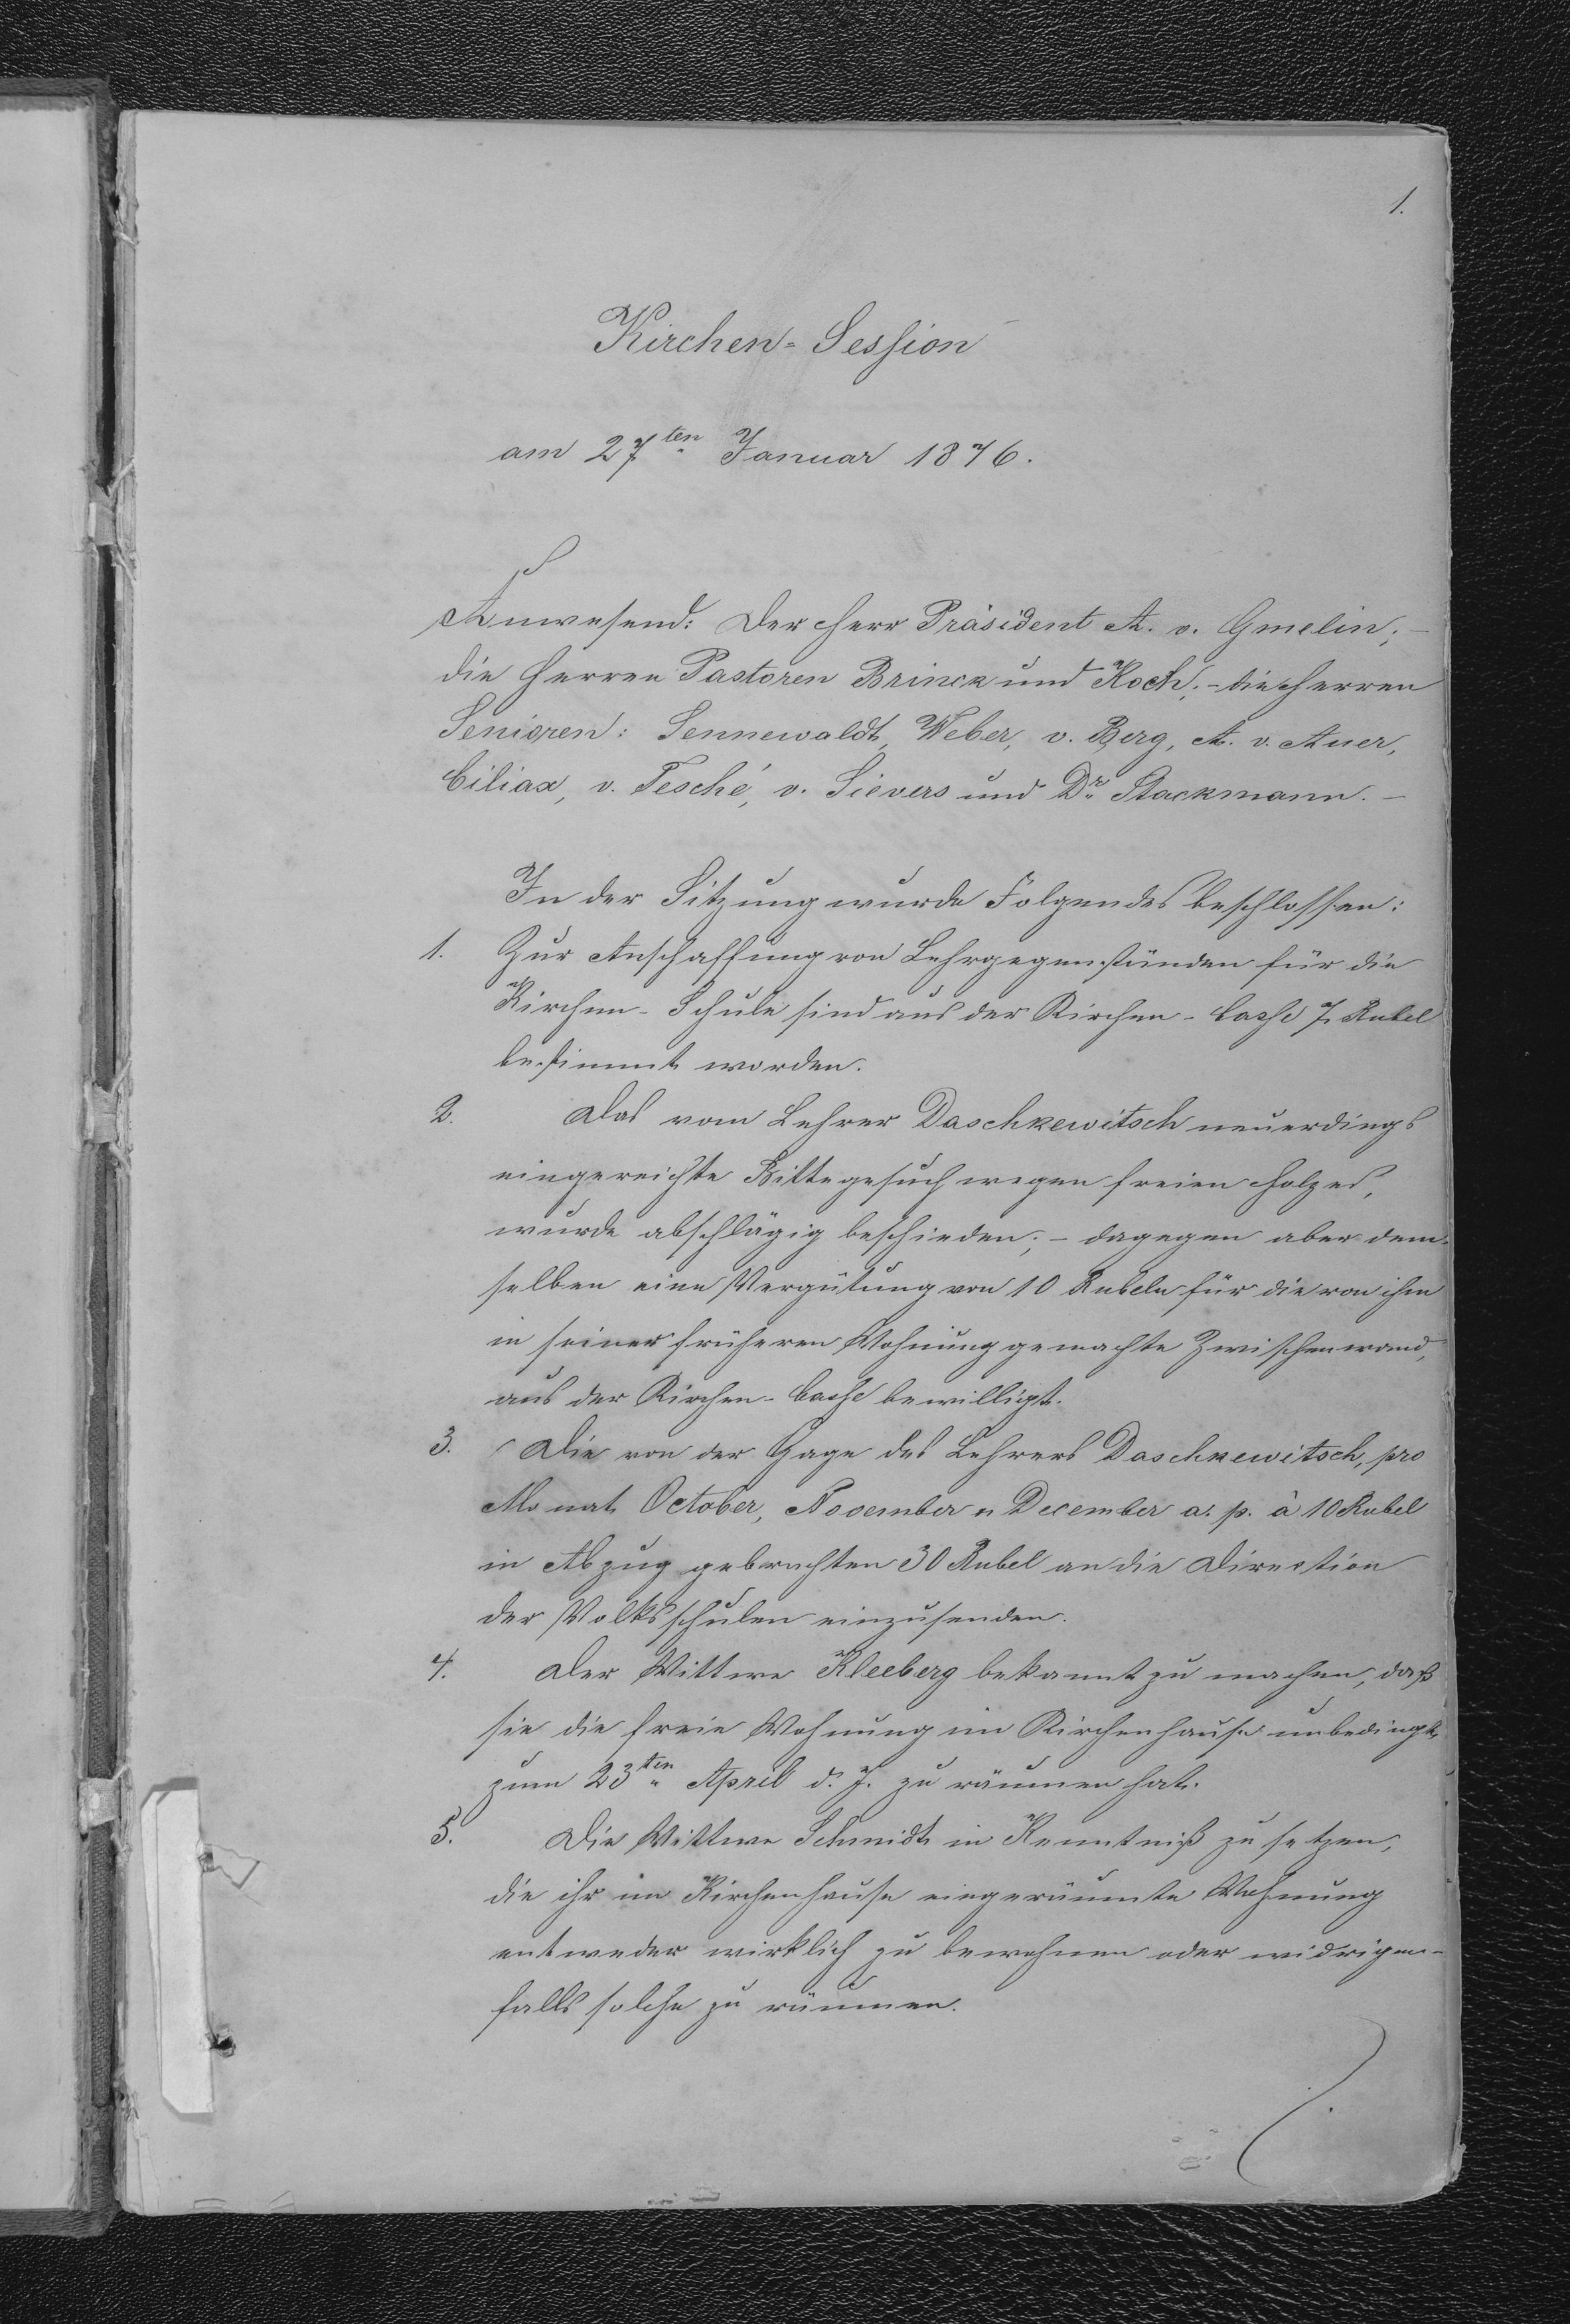 1.
Kirchen-Session
am 27ten Januar 1876.
Anwesend: Der Herr Präsident A. v. Gmelin; –
die Herren Pastoren Brinck und Koch; – die Herren
Senioren: Sennewaldt, Weber, v. Berg, A. v. Auer,
Ciliax, v. Tesché, v. Sievers und Dr Stackmann. –
In der Sitzung wurde Folgendes beschlossen:
1. Zur Anschaffung von Lehrgegenständen für die
Kirchen-Schule sind aus der Kirchen-Casse 7 Rubel
bestimmt worden.
2. Das vom Lehrer Daschkewitsch neuerdings
eingereichte Bittegesuch wegen freien Holzes,
wurde abschlägig beschieden; – dagegen aber dem-
selben eine Vergütung von 10 Rubeln für die von ihm
in seiner früheren Wohnung gemachte Zwischenwand,
aus der Kirchen-Casse bewilligt.
3. Die von der Gage des Lehrers Daschkewitsch, pro
Monat October, November u December a. p. à 10 Rubel
in Abzug gebrachten 30 Rubel an die Direction
der Volksschulen einzusenden.
4. Der Wittwe Kleeberg bekannt zu machen, daß
sie die freie Wohnung im Kirchenhause unbedingt
zum 23ten April d. J. zu räumen hat.
5. Die Wittwe Schmidt in Kenntniß zu setzen,
die ihr im Kirchenhause eingeräumte Wohnung
entweder wirklich zu bewohnen oder widrigen-
falls solche zu räumen.